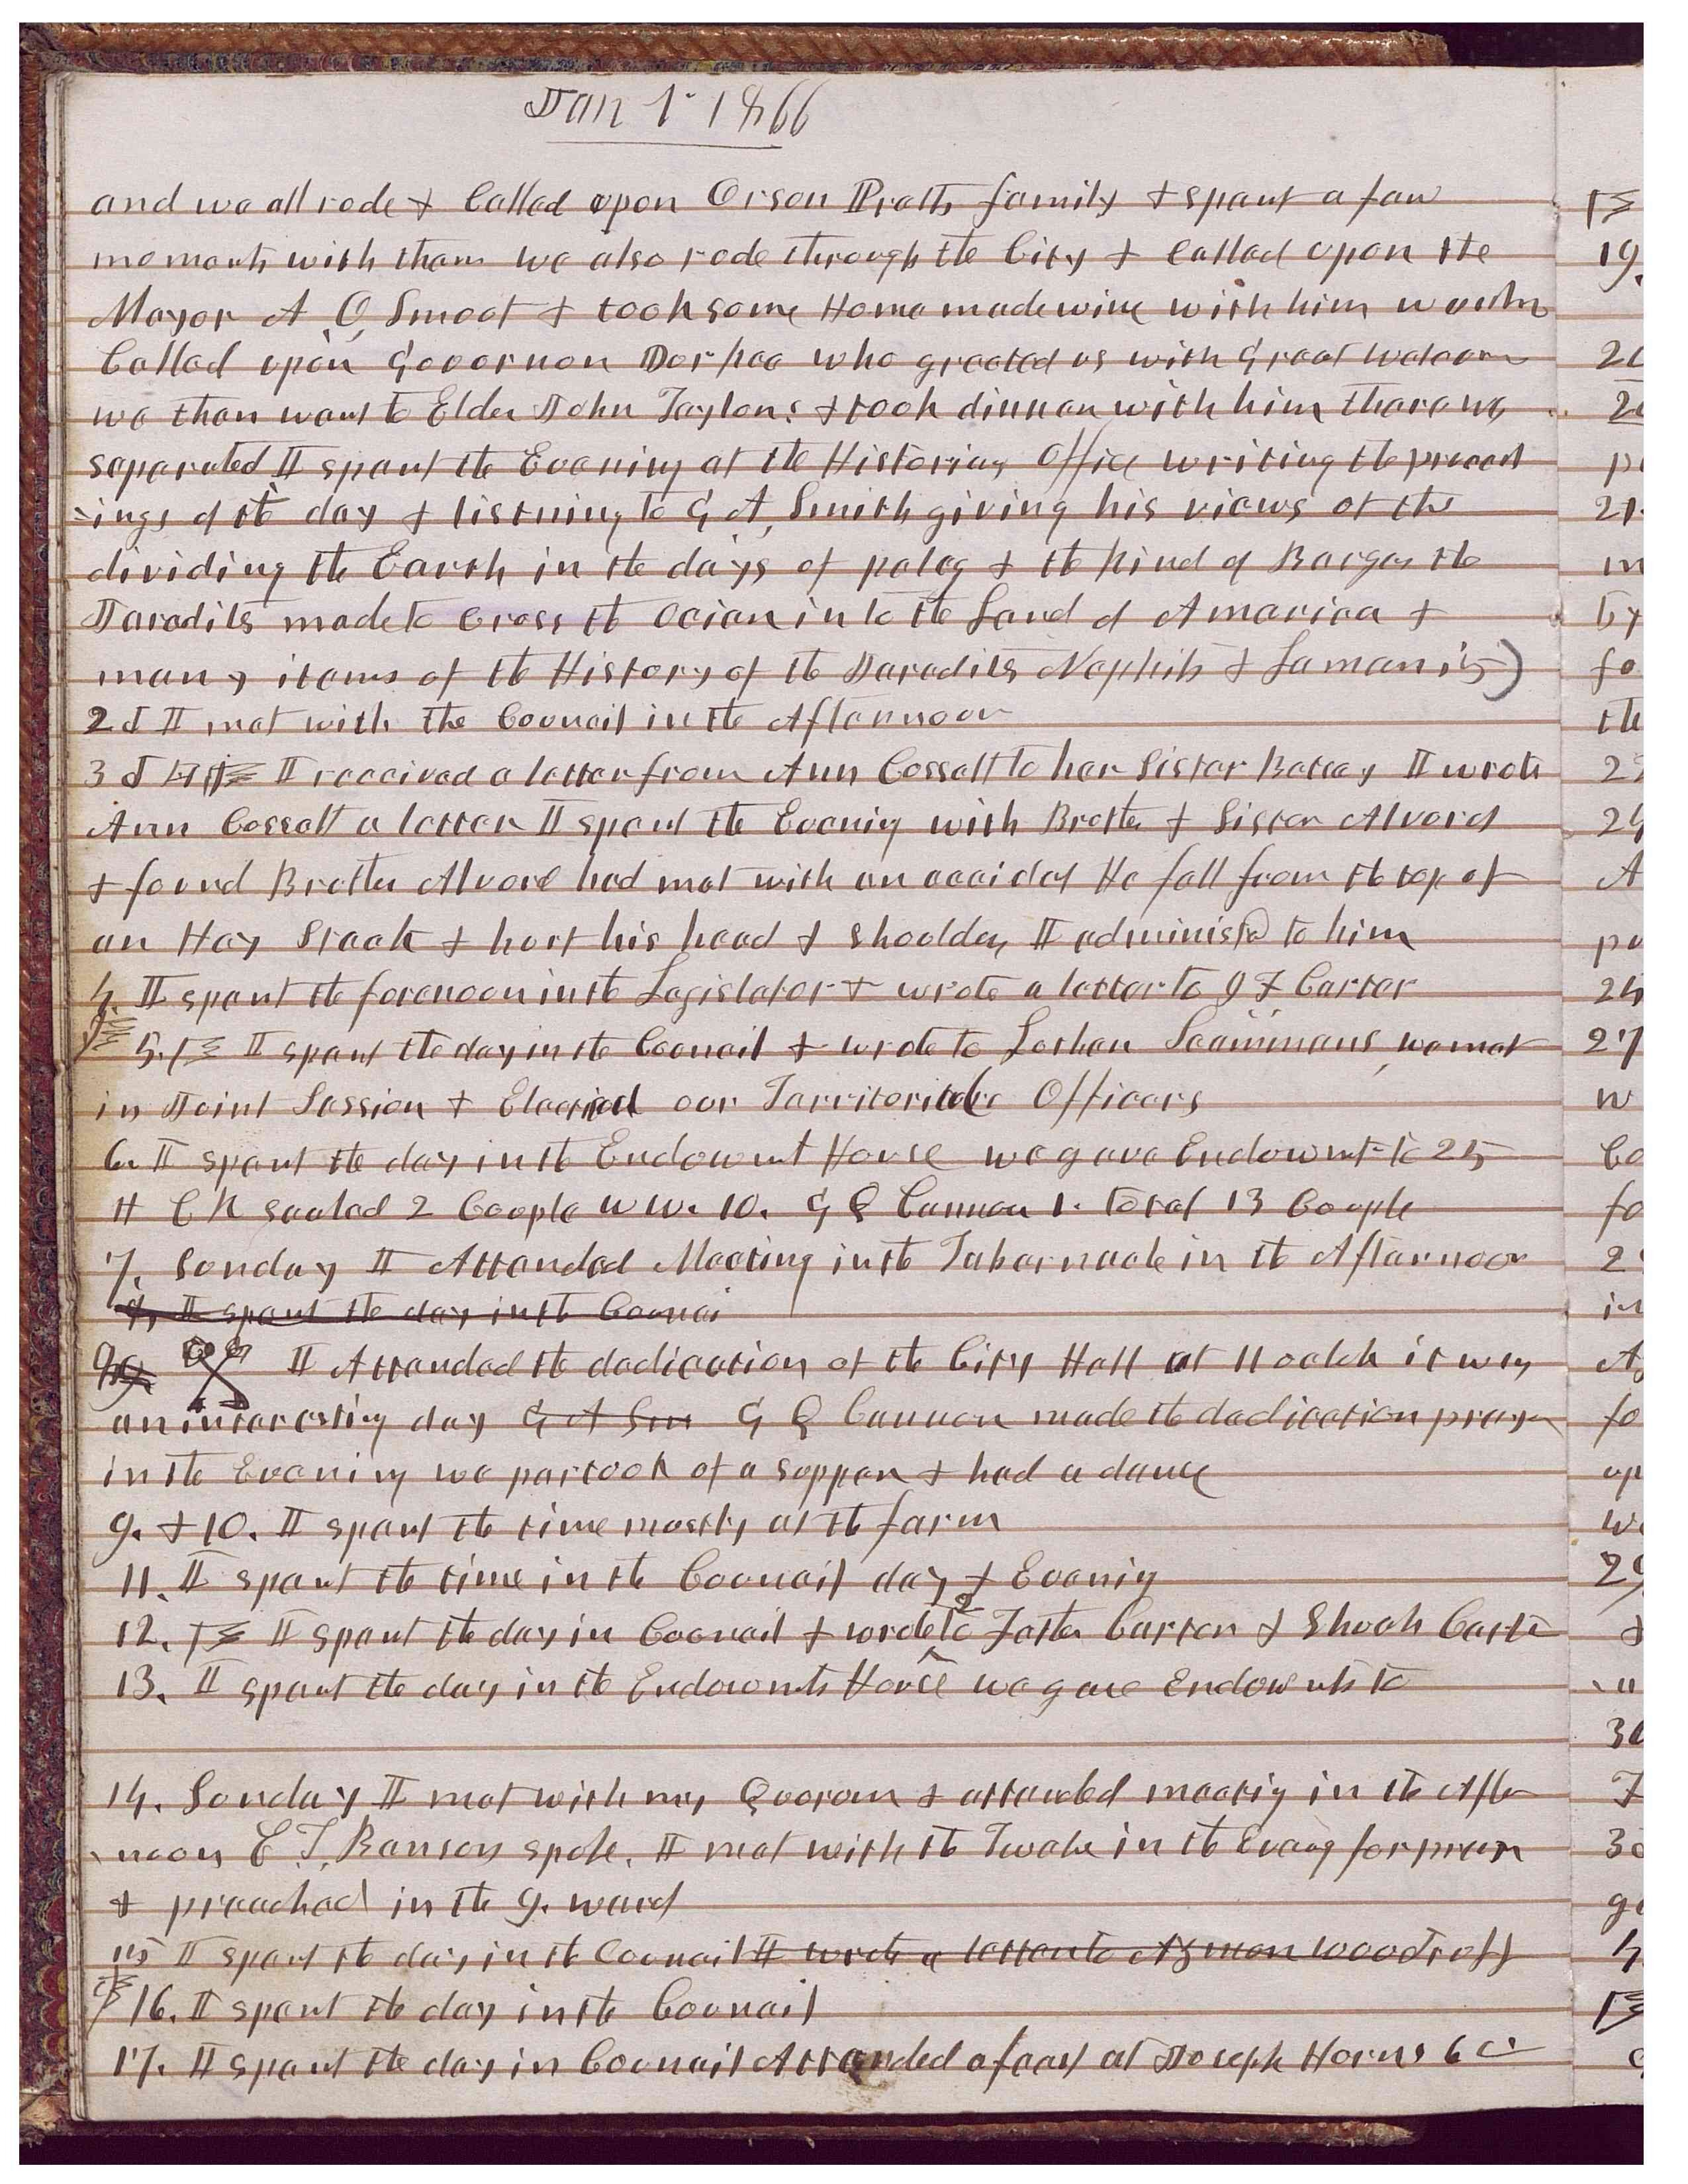 Jan 1. 1866
and we all rode & Called upon Orson Pratts family & spent a few
moments with them we also rode through the City & Called upon the
Mayor A. O. Smoot & took some Home made wine with him we then
Called upon Governor Dorkee who greeted us with Great welcom
we then went to Elder John Taylors & took dinner with him there we
separated I spent the Evening at the Historians Office writing the proceed
-ings of the day & listning to G A. Smith giving his views of the
dividing the Earth in the days of peleg & the kind of Barges the
Jaredits made to Cross the Ocian into the Land of America &
many items of the History of the Jaredits Nephits & Lamanits)
2d I met with the Council in the Afternoon
3d I received a letter from Ann Cossett to her Sister Betsey I wrote
Ann Cossett a letter I spent the Evenig with Brother & Sister Alvord
& found Brother Alvord had met with an accidet He fell from the top of
an Hay Stack & hurt his head & shoulder, I administrd to him
4. I spent the forenoon in the Legislator & wrote a letter to I F Carter
5. I spent the day in the Council & wrote to Lothan Scammans, we met
in Joint Session & Elected our Territorial Officers
6. I spent the day in the Endowmt House we gave Endowmt to 25
H C K sealed 2 Couple W W. 10. G Q Cannon 1. total 13 Couple
7. Sunday I Attended Meeting in the Tabernacle in the Afternoon
9, I spent the day in the Counci
I Attended the dedication of the City Hall at 11 oclok it was
an interesting day G A Sm G Q Cannon made the dedication prayer
in the Evening we partook of a supper & had a dance
9. & 10. I spent the time mostly at the farm
11. I spent the time in the Council day & Evenig
12. I spent the day in Council & wrote 2 to Foster Carter & Shuah Carter
13. I spent the day in the Endowmts House we gave Endowmts to
14. Sunday I met with my Quorum & attended meetig in the After
-noon E T. Benson spoke. I met with the Twelve in the Eveng for prayer
& preached in the 9. ward
15 I spent the day in the Council I wrote a letter to Azmon Woodruff
16. I spent the day in the Council
17. I spent the day in Council Attended a feast at Joseph Horns 6 c